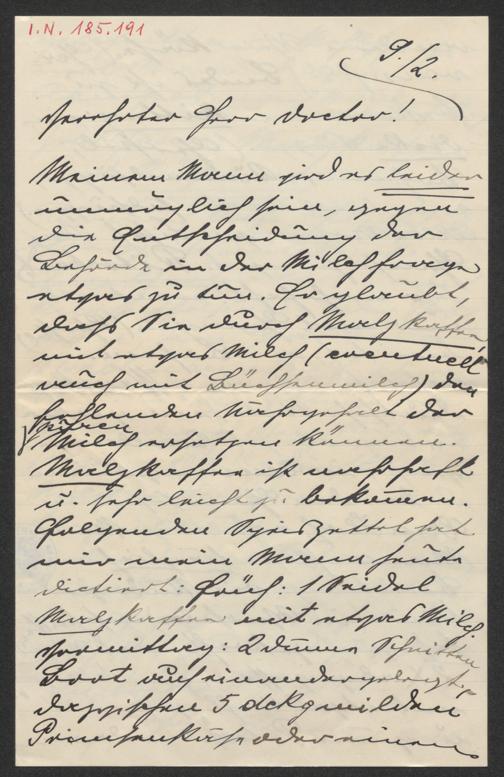 I.N. 185.191
9./2.
Verehrter Herr Doctor!
Meinem Mann wird es leider
unmöglich sein, gegen
die Entscheidung der
Behörde in der Milchfrage
etwas zu tun. Er glaubt,
dass Sie durch Malzkaffee
mit etwas Milch (eventuell
auch mit Büchsenmilch) den
fehlenden Nährgehalt der
Milch ersetzen können.
Malzkaffee ist nahrhaft
u. sehr leicht zu bekommen.
Folgenden Speiszettel hat
mir mein Mann heute
dictiert: Früh: 1 Seidel
Malzkaffee mit etwas Milch
Vormittag: 2 dünne Schnitten
Brot aufeinandergelegt,
dazwischen 5 dckg milden
Primsenkäse oder einen